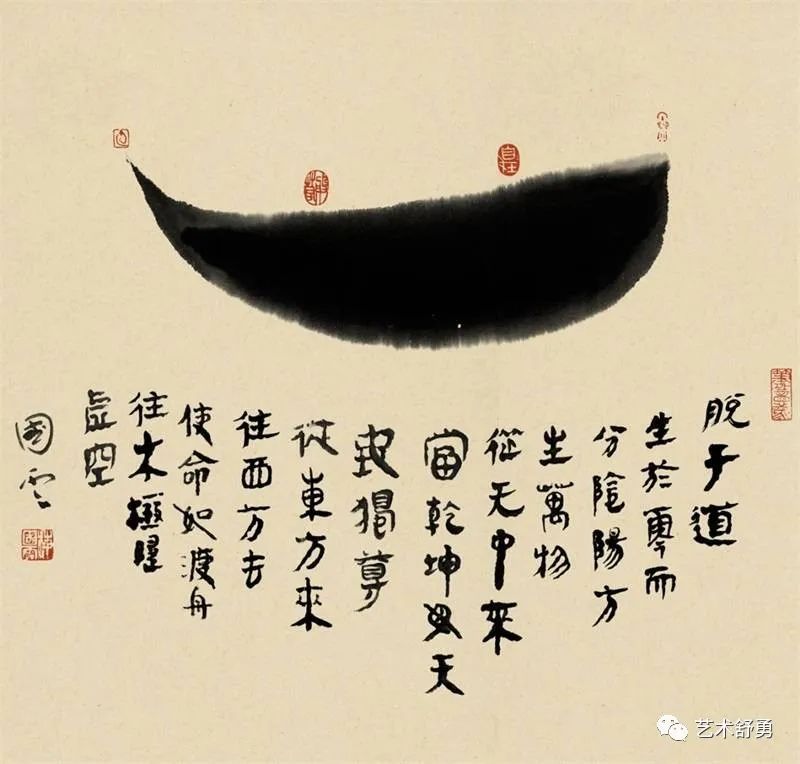 脫于道
生於零而
分陰陽方
生萬物
從无中來
當乾坤天
獨尊
從東方來
往西方去
使命如渡舟
往木極
虛空
國雲
自在
艺术舒勇